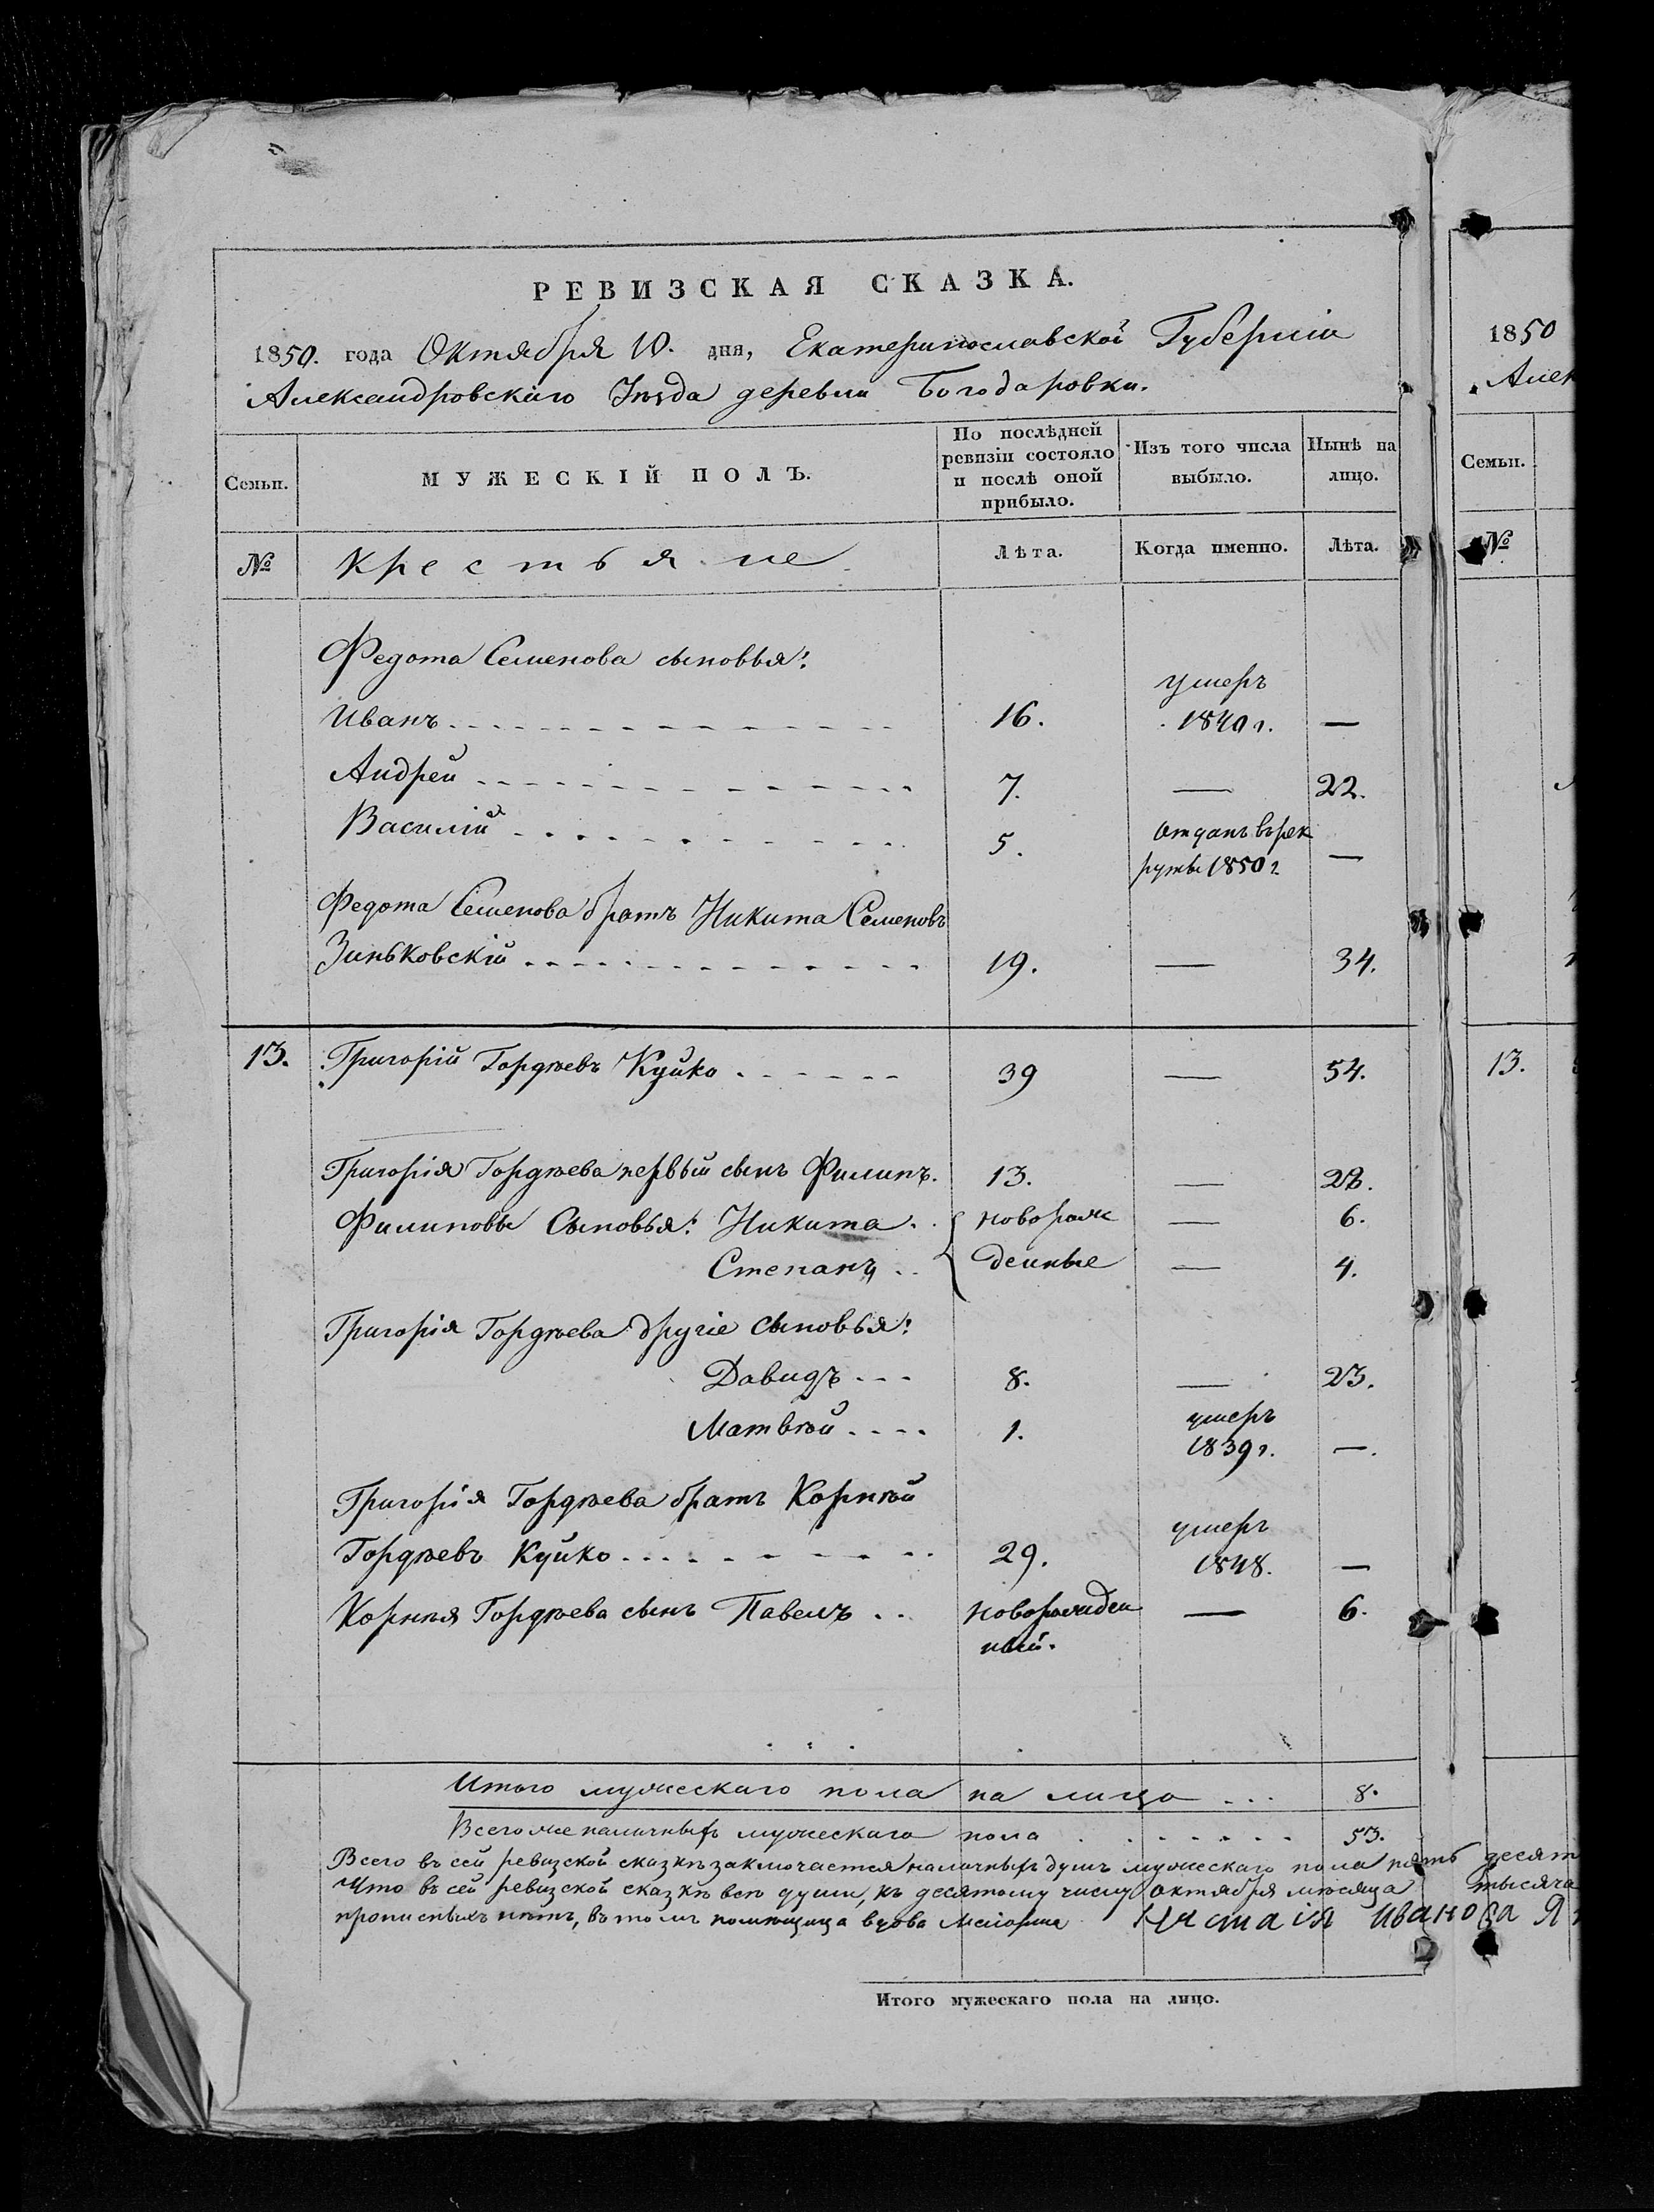 РЕВИЗСКАЯ СКАЗКА.
1850. года Октября 10. дня, Екатеринославской Губерніи
Александровскаго Уѣзда деревни Богодаровки.
Семьи.
МУЖЕСКІЙ ПОЛЪ.
По послѣдней ревизіи состояло и послѣ оной прибыло.
Изъ того числа выбыло.
Нынѣ на лицо.
№ Крестьяне Лѣта. Когда именно. Лѣта.
Федота Семенова сыновья:
Иванъ 16. умеръ 1840 г. —
Андрей 7. — 22.
Василій 5. отданъ въ рек руты 1850 г. —
Федота Семенова братъ Никита Семеновъ
Зиньковскій 19. — 34.
13. Григорій Гордѣевъ Куйко 39 — 54.
Григорія Гордѣева первый сынъ Филипъ. 13. — 28.
Филиповы Сыновья: Никита новорож — 6.
Степанъ денные — 4.
Григорія Гордѣева другіе сыновья:
Давидъ 8. — 23.
Матвѣй 1. умеръ 1839 г. —.
Григорія Гордѣева братъ Корнѣй
Гордѣевъ Куйко 29. умеръ 1848. —
Корнѣя Гордѣева сынъ Павелъ новорожден ный. — 6.
Итого мужескаго пола на лицо 8.
Всего же наличныхъ мужескаго пола 53.
Всего въ сей ревизской сказкѣ заключается наличныхъ душъ мужескаго пола пять десят
Что въ сей ревизской сказкѣ всѣ души, къ десятому числу октября мѣсяца тысяча
прописныхъ нѣтъ, въ томъ помѣщица вдова Иванова
Итого мужескаго пола на лицо.
1850
Алек
Семьи.
№
13.